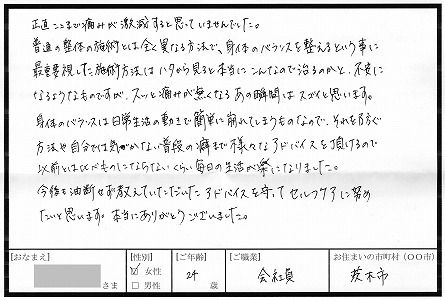 正直ここまで痛みが激減すると思っていませんでした。
普通の整体の施術とは全く異なる方法で、身体のバランスを整えるという事に
最重要視した施術方法はハタから見ると本当にこんなので治るのかと、不安に
なるようなものですが、スッと痛みが無くなるあの瞬間はスゴイと思います。
身体のバランスは日常生活の動きで簡単に崩れてしまうものなので、それを防ぐ
方法や自分では気がつかない普段の癖まで様々なアドバイスを頂けるので
以前とは比べものにならないくらい毎日の生活が楽になりました。
今後も油断せず教えていただいたアドバイスを守ってセルフケアに努め
たいと思います。本当にありがとうございました。
[おなまえ] [性別] [ご年齢] [ご職業] [お住まいの市町村(○○市)]
さま ☑ 女性 □ 男性 24 歳 会社員 茨木市